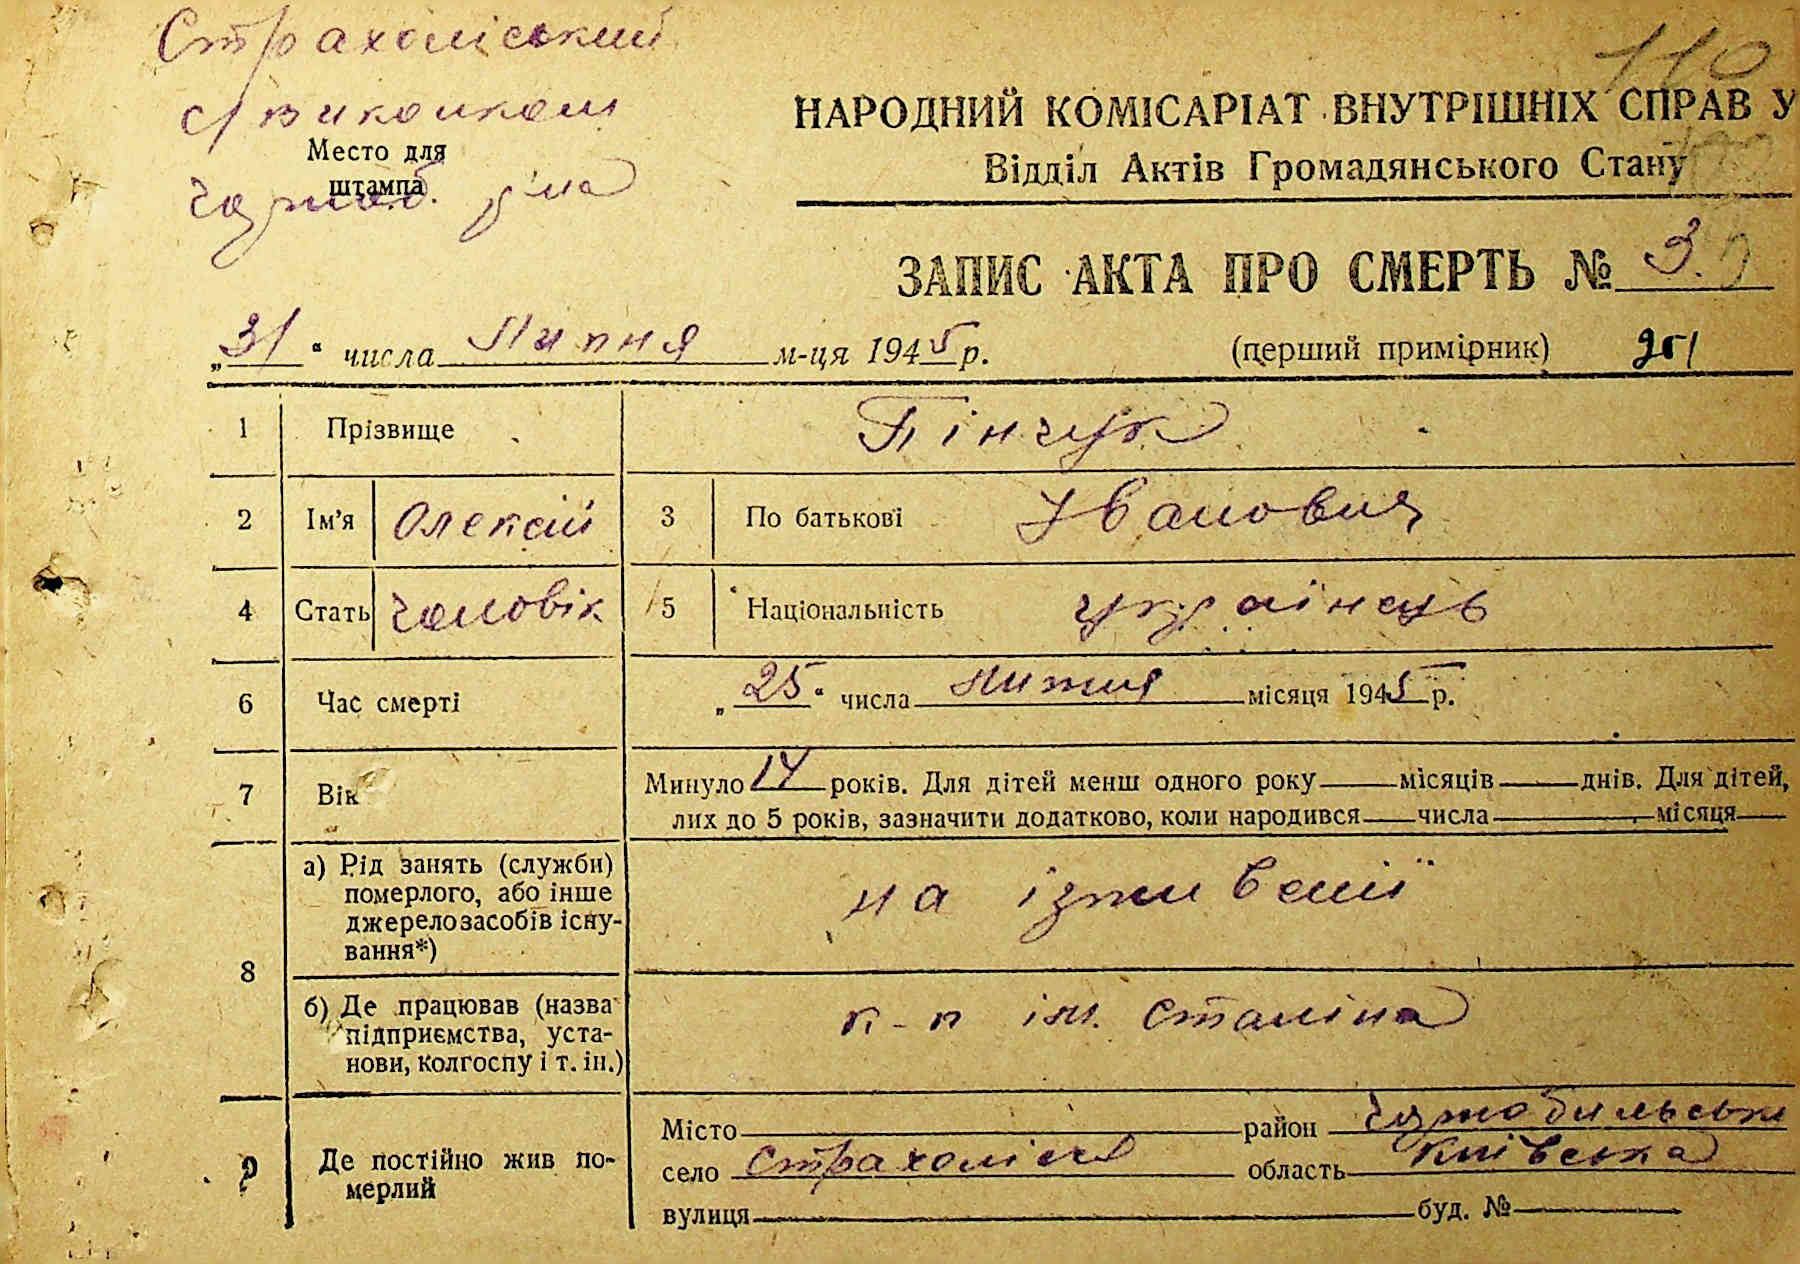 Страхоліський
с/виконком
Место для
штампа
Чорноб. р-на
110
НАРОДНИЙ КОМІСАРІАТ ВНУТРІШНІХ СПРАВ У
Відділ Актів Громадянського Стану
ЗАПИС АКТА ПРО СМЕРТЬ № 3.
„31“ числа Липня м-ця 1945 р. (перший примірник)
1 Прізвище Пінчук
2 Ім'я Олексій 3 По батькові Іванович
4 Стать чоловік 5 Національність українець
6 Час смерті „25“ числа липня місяця 1945 р.
7 Вік Минуло 14 років. Для дітей менш одного року місяців днів. Для дітей,
лих до 5 років, зазначити додатково, коли народився числа місяця
8 а) Рід занять (служби)
померлого, або інше
джерело засобів існу-
вання*)
на іживенії
б) Де працював (назва
підприємства, уста-
нови, колгоспу і т. ін.)
к-п ім. Сталіна
9 Де постійно жив по-
мерлий
Місто район Чорнобильськи
село Страхолісся область Київська
вулиця буд. №